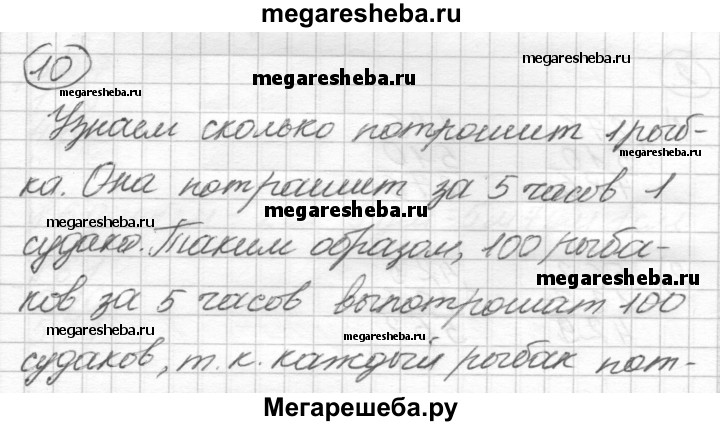 megaresheba.ru
10
megaresheba.ru
megaresheba.ru
Узнаем сколько потрошит 1 рыб-
megaresheba.ru
ка. Она потрошит за 5 часов 1
megaresheba.ru
megaresheba.ru
судака. Таким образом, 100 рыба-
megaresheba.ru
ков за 5 часов выпотрошат 100
megaresheba.ru
megaresheba.ru
судаков, т. к. каждый рыбак пот-
Мегарешеба.ру